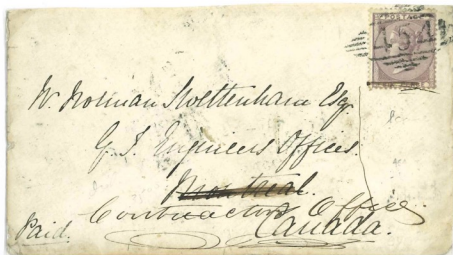 POSTAG
454
W. Norman Mottenham Esq
G. T. Engineers Offices.
Montreal.
Contractors Office
Canada.
Paid.